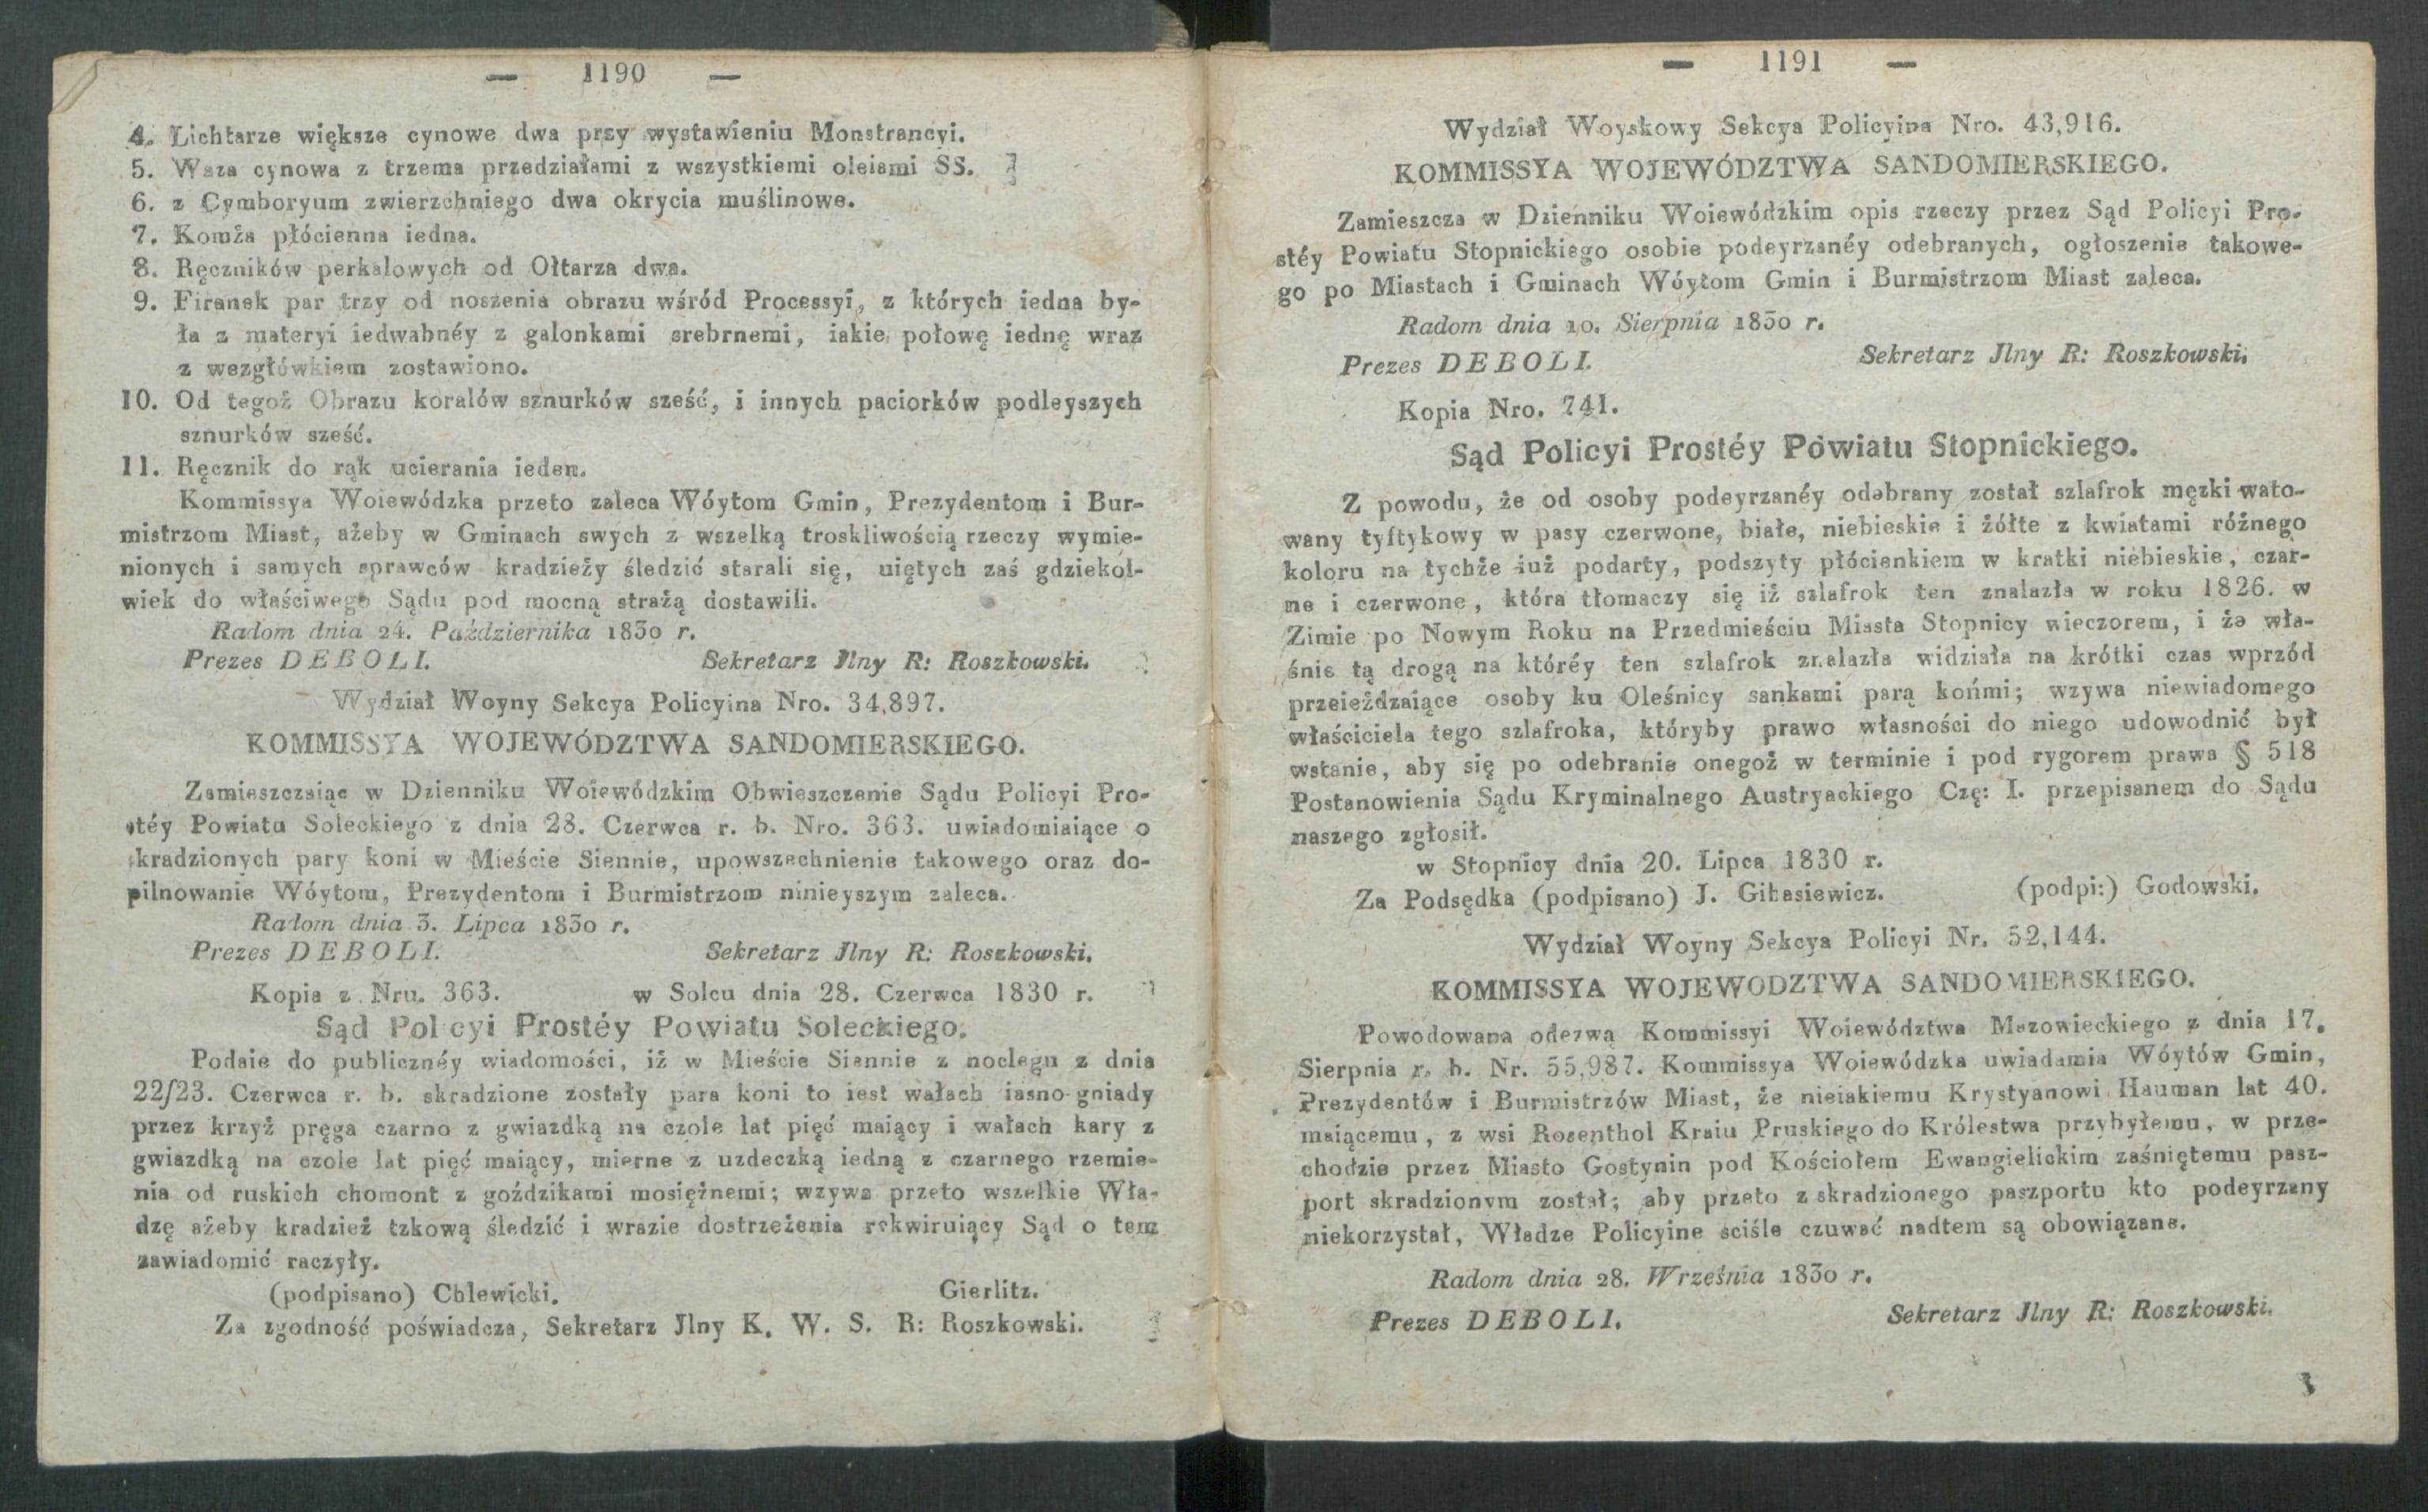 — 1190 —
4. Lichtarze większe cynowe dwa przy wystawieniu Monstrancyi.
5. Waza cynowa z trzema przedziałami z wszystkiemi oleiami SS.
6. z Cymboryum zwierzchniego dwa okrycia muślinowe.
7. Komża płócienna iedna.
8. Ręczników perkalowych od Ołtarza dwa.
9. Firanek par trzy od noszenia obrazu wśród Processyi, z których iedna by-
ła z materyi iedwabnéy z galonkami srebrnemi, iakie połowę iednę wraz
z wezgłówkiem zostawiono.
10. Od tegoż Obrazu koralów sznurków sześć, i innych paciorków podleyszych
sznurków sześć.
11. Ręcznik do rąk ucierania ieden.
Kommissya Woiewódzka przeto zaleca Wóytom Gmin, Prezydentom i Bur-
mistrzom Miast, ażeby w Gminach swych z wszelką troskliwością rzeczy wymie-
nionych i samych sprawców kradzieży śledzić starali się, uiętych zaś gdziekol-
wiek do właściwego Sądu pod mocną strażą dostawili.
Radom dnia 24. Października 1830 r.
Prezes DEBOLI. Sekretarz Jlny R: Roszkowski.
Wydział Woyny Sekcya Policyina Nro. 34,897.
KOMMISSYA WOJEWÓDZTWA SANDOMIERSKIEGO.
Zamieszczaiąc w Dzienniku Woiewódzkim Obwieszczenie Sądu Policyi Pro-
stéy Powiatu Soleckiego z dnia 28. Czerwca r. b. Nro. 363. uwiadomiaiące o
skradzionych pary koni w Mieście Siennie, upowszechnienie takowego oraz do-
pilnowanie Wóytom, Prezydentom i Burmistrzom ninieyszym zaleca.
Radom dnia 3. Lipca 1830 r.
Prezes DEBOLI. Sekretarz Jlny R: Roszkowski.
Kopia z Nru. 363. w Solcu dnia 28. Czerwca 1830 r.
Sąd Policyi Prostéy Powiatu Soleckiego.
Podaie do publicznéy wiadomości, iż w Mieście Siennie z noclegu z dnia
22/23. Czerwca r. b. skradzione zostały para koni to iest wałach iasno-gniady
przez krzyż pręga czarno z gwiazdką na czole lat pięć maiący i wałach kary z
gwiazdką na czole lat pięć maiący, mierne z uzdeczką iedną z czarnego rzemie-
nia od ruskich chomont z goździkami mosiężnemi; wzywa przeto wszelkie Wła-
dzę ażeby kradzież tzkową śledzić i wrazie dostrzeżenia rekwiruiący Sąd o tem
zawiadomić raczyły.
(podpisano) Chlewicki. Gierlitz.
Za zgodność poświadcza, Sekretarz Jlny K. W. S. R: Roszkowski.
— 1191 —
Wydział Woyskowy Sekcya Policyina Nro. 43,916.
KOMMISSYA WOJEWÓDZTWA SANDOMIERSKIEGO.
Zamieszcza w Dzienniku Woiewódzkim opis rzeczy przez Sąd Policyi Pro-
stéy Powiatu Stopnickiego osobie podeyrzanéy odebranych, ogłoszenie takowe-
go po Miastach i Gminach Wóytom Gmin i Burmistrzom Miast zaleca.
Radom dnia 10. Sierpnia 1830 r.
Prezes DEBOLI. Sekretarz Jlny R: Roszkowski.
Kopia Nro. 741.
Sąd Policyi Prostéy Powiatu Stopnickiego.
Z powodu, że od osoby podeyrzanéy odebrany został szlafrok męzki wato-
wany tyftykowy w pasy czerwone, białe, niebieskie i żółte z kwiatami różnego
koloru na tychże iuż podarty, podszyty płócienkiem w kratki niebieskie, czar-
ne i czerwone, która tłomaczy się iż szlafrok ten znalazła w roku 1826. w
Zimie po Nowym Roku na Przedmieściu Miasta Stopnicy wieczorem, i że wła-
śnie tą drogą na któréy ten szlafrok znalazła widziała na krótki czas wprzód
przeieżdzaiące osoby ku Oleśnicy sankami parą końmi; wzywa niewiadomego
właściciela tego szlafroka, któryby prawo własności do niego udowodnić był
wstanie, aby się po odebranie onegoż w terminie i pod rygorem prawa § 518
Postanowienia Sądu Kryminalnego Austryackiego Czę: I. przepisanem do Sądu
naszego zgłosił.
w Stopnicy dnia 20. Lipca 1830 r.
Za Podsędka (podpisano) J. Gibasiewicz. (podpi:) Godowski.
Wydział Woyny Sekcya Policyi Nr. 52,144.
KOMMISSYA WOJEWODZTWA SANDOMIERSKIEGO.
Powodowana odezwą Kommissyi Woiewództwa Mazowieckiego z dnia 17.
Sierpnia r. b. Nr. 55,987. Kommissya Woiewódzka uwiadamia Wóytów Gmin,
Prezydentów i Burmistrzów Miast, że nieiakiemu Krystyanowi Hauman lat 40.
maiącemu, z wsi Rosenthol Kraiu Pruskiego do Królestwa przybyłemu, w prze-
chodzie przez Miasto Gostynin pod Kościołem Ewangielickim zaśniętemu pasz-
port skradzionym został; aby przeto z skradzionego paszportu kto podeyrzany
niekorzystał, Władze Policyine ściśle czuwać nadtem są obowiązane.
Radom dnia 28. Września 1830 r.
Prezes DEBOLI. Sekretarz Jlny R: Roszkowski.